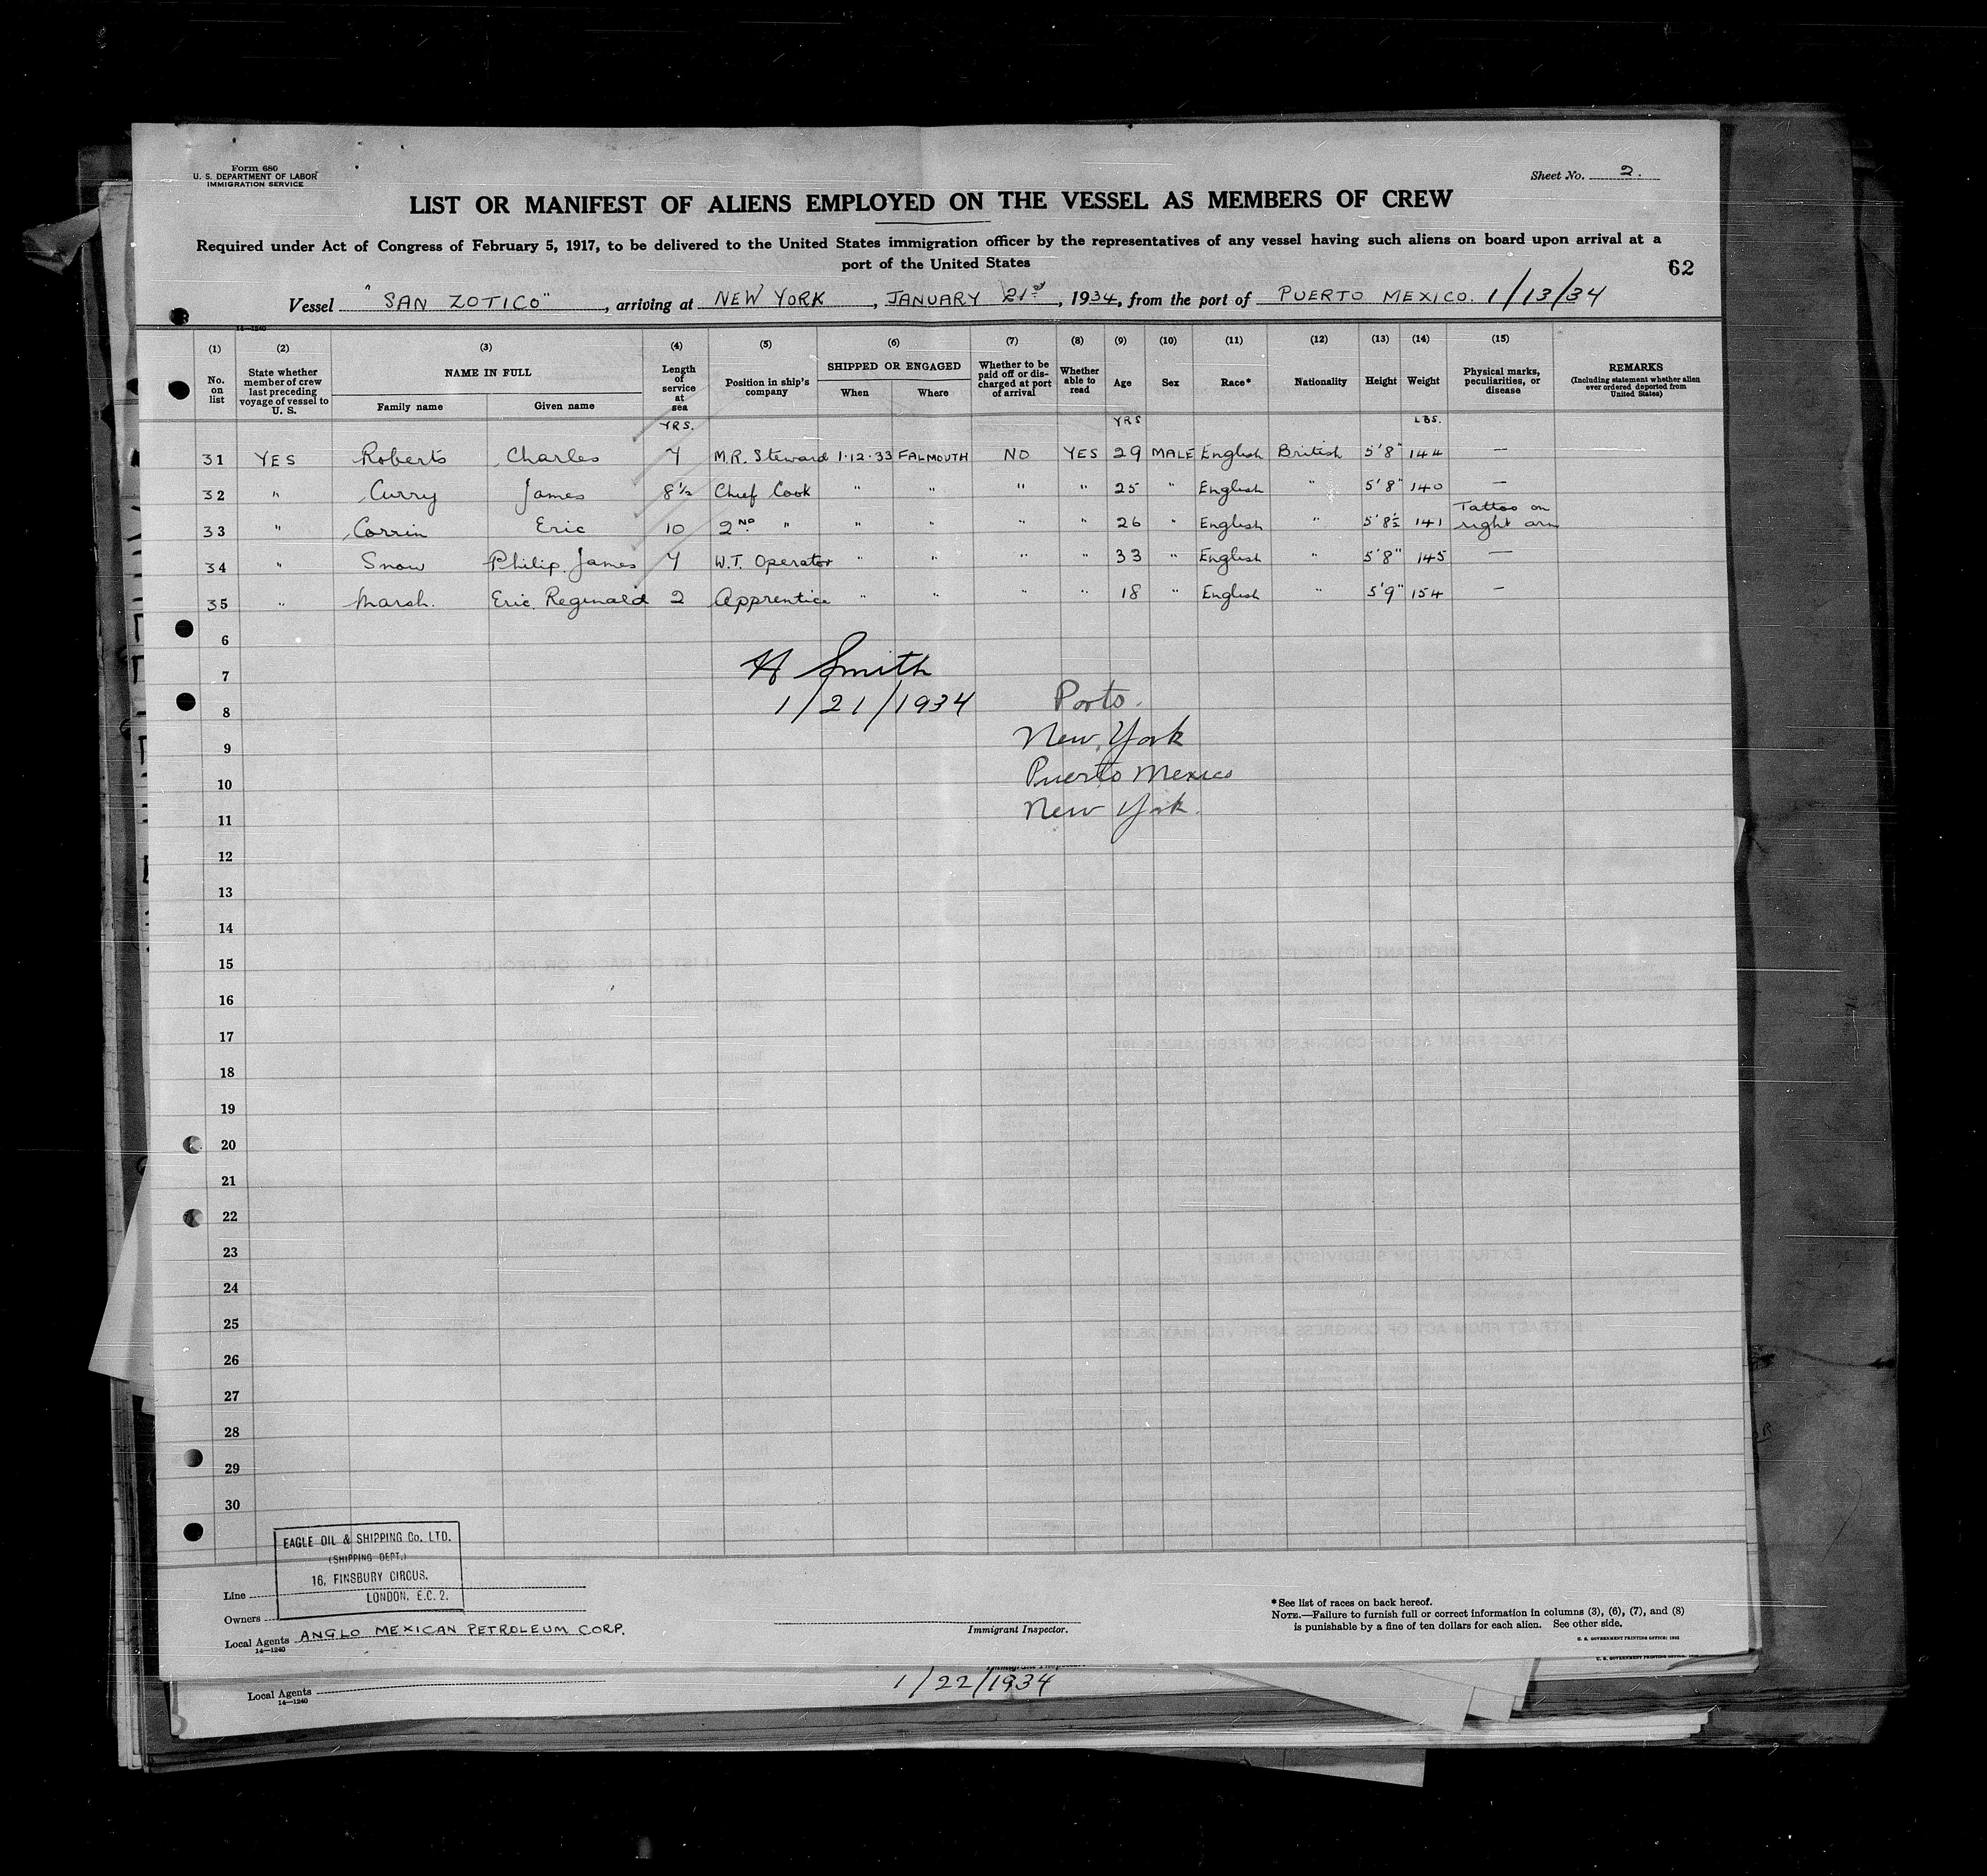 Form 680
U. S. DEPARTMENT OF LABOR
IMMIGRATION SERVICE
Sheet No. 2.
LIST OR MANIFEST OF ALIENS EMPLOYED ON THE VESSEL AS MEMBERS OF CREW
Required under Act of Congress of February 5, 1917, to be delivered to the United States immigration officer by the representatives of any vessel having such aliens on board upon arrival at a
port of the United States
62
Vessel "SAN ZOTICO", arriving at NEW YORK, JANUARY 21st, 1934, from the port of PUERTO MEXICO. 1/13/34
14—1240
(1) (2) (3) (4) (5) (6) (7) (8) (9) (10) (11) (12) (13) (14) (15)
No. on list State whether member of crew last preceding voyage of vessel to U. S. NAME IN FULL Family name Given name Length of service at sea Position in ship's company SHIPPED OR ENGAGED When Where Whether to be paid off or discharged at port of arrival Whether able to read Age Sex Race* Nationality Height Weight Physical marks, peculiarities, or disease REMARKS (Including statement whether alien ever ordered deported from United States)
YRS. YRS LBS.
31 YES Roberts Charles 7 M.R. Steward 1·12·33 FALMOUTH NO YES 29 MALE English British 5'8" 144 —
32 " Curry James 8½ Chief Cook " " " " 25 " English " 5'8" 140 —
33 " Corrin Eric 10 2ND " " " " " 26 " English " 5'8½ 141 Tattoo on right arm
34 " Snow Philip. James 7 W.T. Operator " " " " 33 " English " 5'8" 145 —
35 " Marsh. Eric. Reginald 2 Apprentice " " " " 18 " English " 5'9" 154 —
6
7 H Smith
8 1/21/1934 Ports.
9 New York
10 Puerto Mexico
11 New York.
12
13
14
15
16
17
18
19
20
21
22
23
24
25
26
27
28
29
30
EAGLE OIL & SHIPPING Co. LTD.
(SHIPPING DEPT.)
16, FINSBURY CIRCUS,
LONDON, E.C. 2.
Line
Owners
Local Agents ANGLO MEXICAN PETROLEUM CORP.
14—1240
Immigrant Inspector.
*See list of races on back hereof.
NOTE.—Failure to furnish full or correct information in columns (3), (6), (7), and (8)
is punishable by a fine of ten dollars for each alien. See other side.
U. S. GOVERNMENT PRINTING OFFICE: 1932
Local Agents
14—1240
1/22/1934